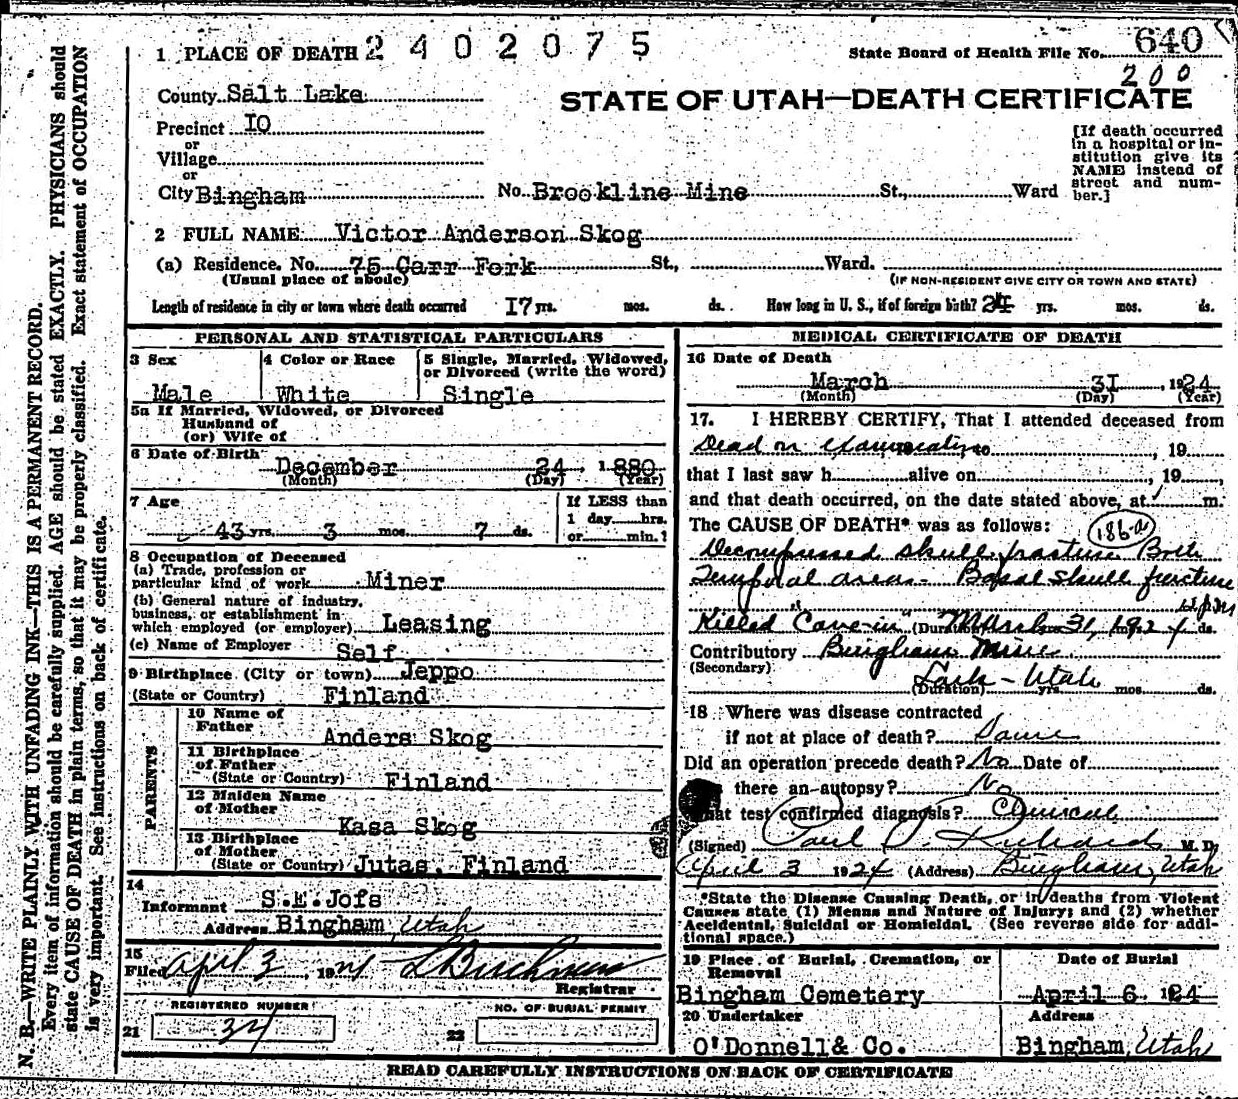 N. B.—WRITE PLAINLY WITH UNFADING INK—THIS IS A PERMANENT RECORD.
Every item of information should be carefully supplied. AGE should be stated EXACTLY. PHYSICIANS should
state CAUSE OF DEATH in plain terms, so that it may be properly classified. Exact statement of OCCUPATION
is very important. See instructions on back of certificate.
1 PLACE OF DEATH 2402075
State Board of Health File No. 640
200
County Salt Lake
STATE OF UTAH—DEATH CERTIFICATE
Precinct IO
or
Village
or
City Bingham No. Brookline Mine St., Ward
[If death occurred
in a hospital or in-
stitution give its
NAME instead of
street and num-
ber.]
2 FULL NAME Victor Anderson Skog
(a) Residence. No. 75 Carr Fork St., Ward.
(Usual place of abode) (IF NON-RESIDENT GIVE CITY OR TOWN AND STATE)
Length of residence in city or town where death occurred I7 yrs. mos. ds. How long in U. S., if of foreign birth? 24 yrs. mos. ds.
PERSONAL AND STATISTICAL PARTICULARS
3 Sex
Male
4 Color or Race
White
5 Single, Married, Widowed,
or Divorced (write the word)
Single
5a If Married, Widowed, or Divorced
Husband of
(or) Wife of
6 Date of Birth December 24, 1880
(Month) (Day) (Year)
7 Age
43 yrs. 3 mos. 7 ds.
If LESS than
1 day hrs.
or min.?
8 Occupation of Deceased
(a) Trade, profession or
particular kind of work Miner
(b) General nature of industry,
business, or establishment in
which employed (or employer) Leasing
(c) Name of Employer Self
9 Birthplace (City or town) Jeppo
(State or Country) Finland
PARENTS
10 Name of
Father Anders Skog
11 Birthplace
of Father
(State or Country) Finland
12 Maiden Name
of Mother Kasa Skog
13 Birthplace
of Mother
(State or Country) Jutas, Finland
14
Informant S.E.Jofs
Address Bingham, Utah
15
Filed April 3, 1924
Registrar
REGISTERED NUMBER
21 34
NO. OF BURIAL PERMIT
22
MEDICAL CERTIFICATE OF DEATH
16 Date of Death
March 3I, 1924
(Month) (Day) (Year)
17. I HEREBY CERTIFY, That I attended deceased from
Dead on examination, 19
that I last saw h alive on, 19,
and that death occurred, on the date stated above, at m.
The CAUSE OF DEATH* was as follows: 186-a
Decompressed skull fracture Both
Temporal areas- Basal skull fracture
Killed "Cave-in" (Duration) March 31, 1924 ds.
Contributory Bingham Mine
(Secondary)
Lark - Utah
(Duration) yrs. mos. ds.
18 Where was disease contracted
if not at place of death? Same
Did an operation precede death? No Date of
there an autopsy? No
test confirmed diagnosis? Clinical
(Signed) Paul S. Richards M. D.
April 3 1924 (Address) Bingham, Utah
*State the Disease Causing Death, or in deaths from Violent
Causes state (1) Means and Nature of Injury; and (2) whether
Accidental, Suicidal or Homicidal. (See reverse side for addi-
tional space.)
19 Place of Burial, Cremation, or
Removal
Bingham Cemetery
Date of Burial
April 6 1924
20 Undertaker
O'Donnell & Co.
Address
Bingham, Utah
READ CAREFULLY INSTRUCTIONS ON BACK OF CERTIFICATE